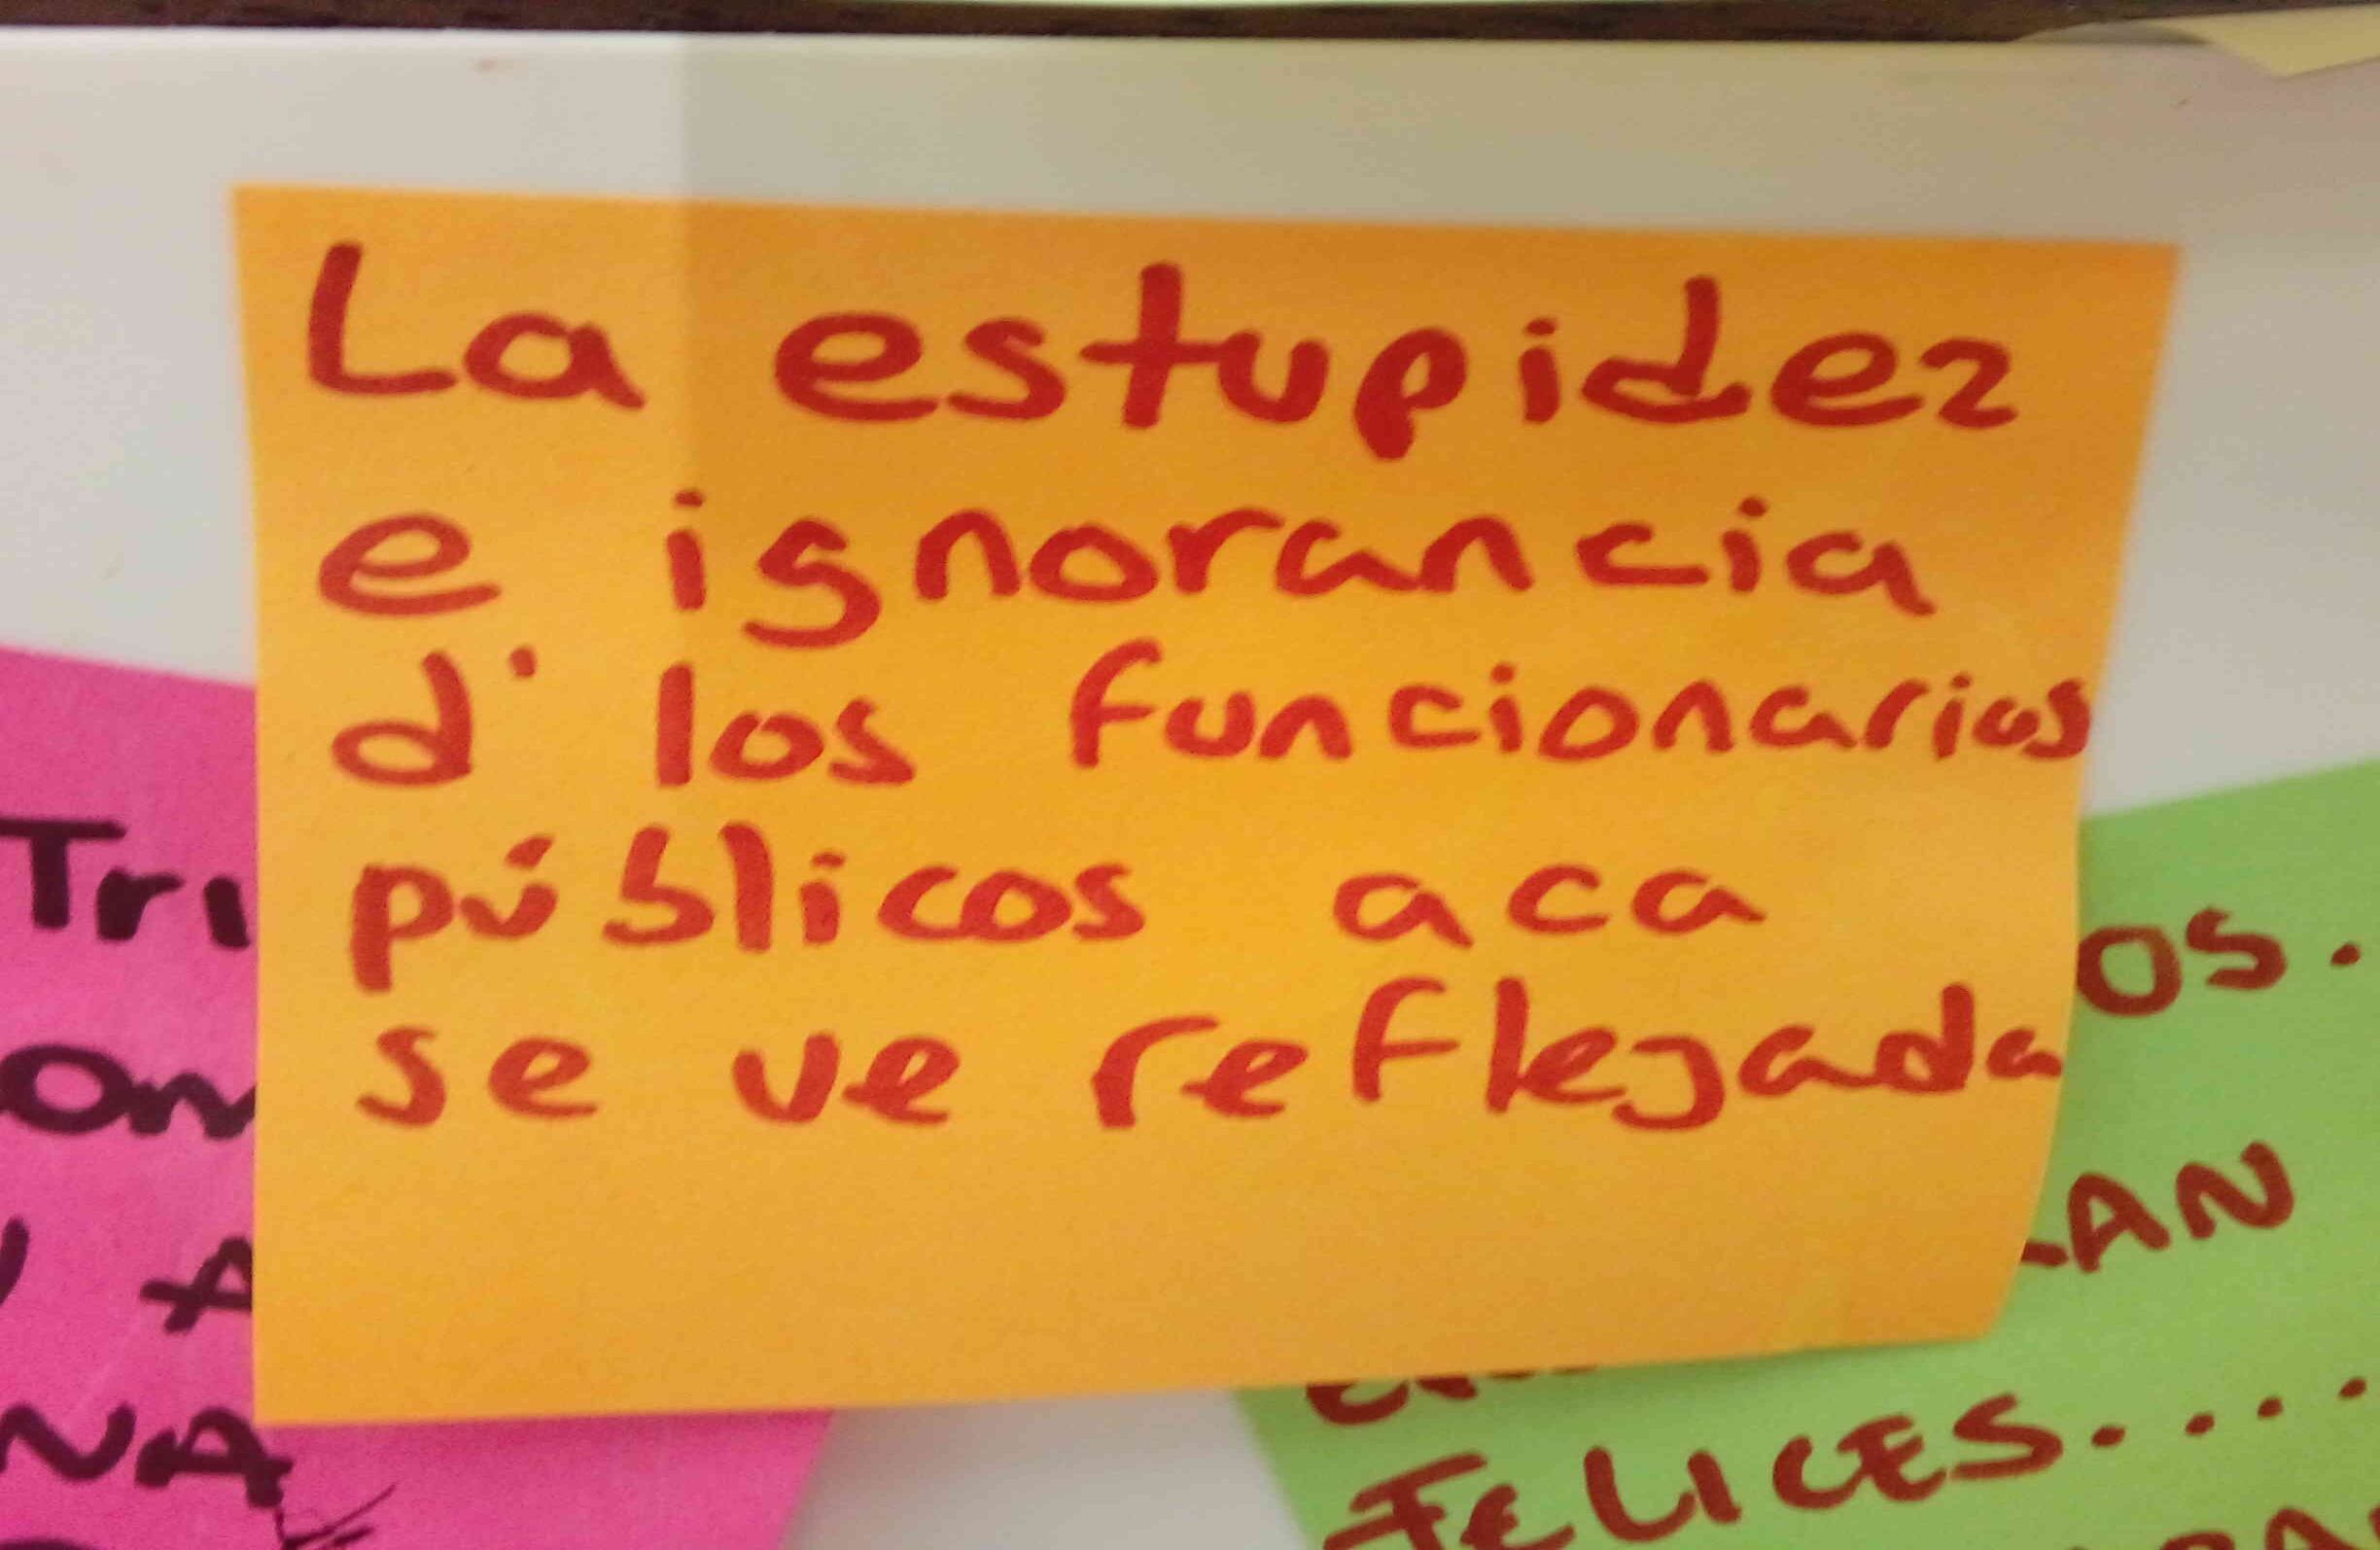 La estupidez
e ignorancia
d' los funcionarios
públicos aca
se ve reflejada
OS.
AN
FELICES....